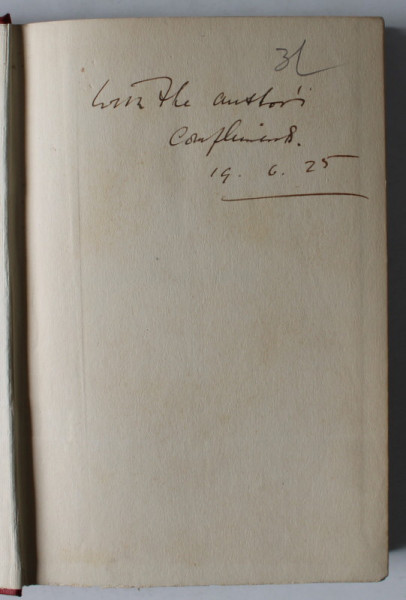 With the author's
Compliments.
19. 6. 25